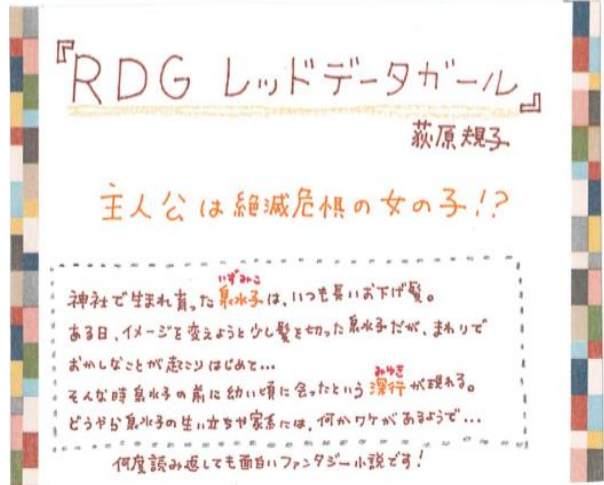 『RDG レッドデータガール』
荻原規子
主人公は絶滅危惧の女の子!?
いずみこ
神社で生まれ育った泉水子は、いつも長いお下げ髪。
ある日、イメージを変えようと少し髪を切った泉水子だが、まわりで
おかしなことが起こりはじめて…
みゆき
そんな時泉水子の前に幼い頃に会ったという深行が現れる。
どうやら泉水子の生い立ちや家系には、何かワケがあるようで…
何度読み返しても面白いファンタジー小説です!